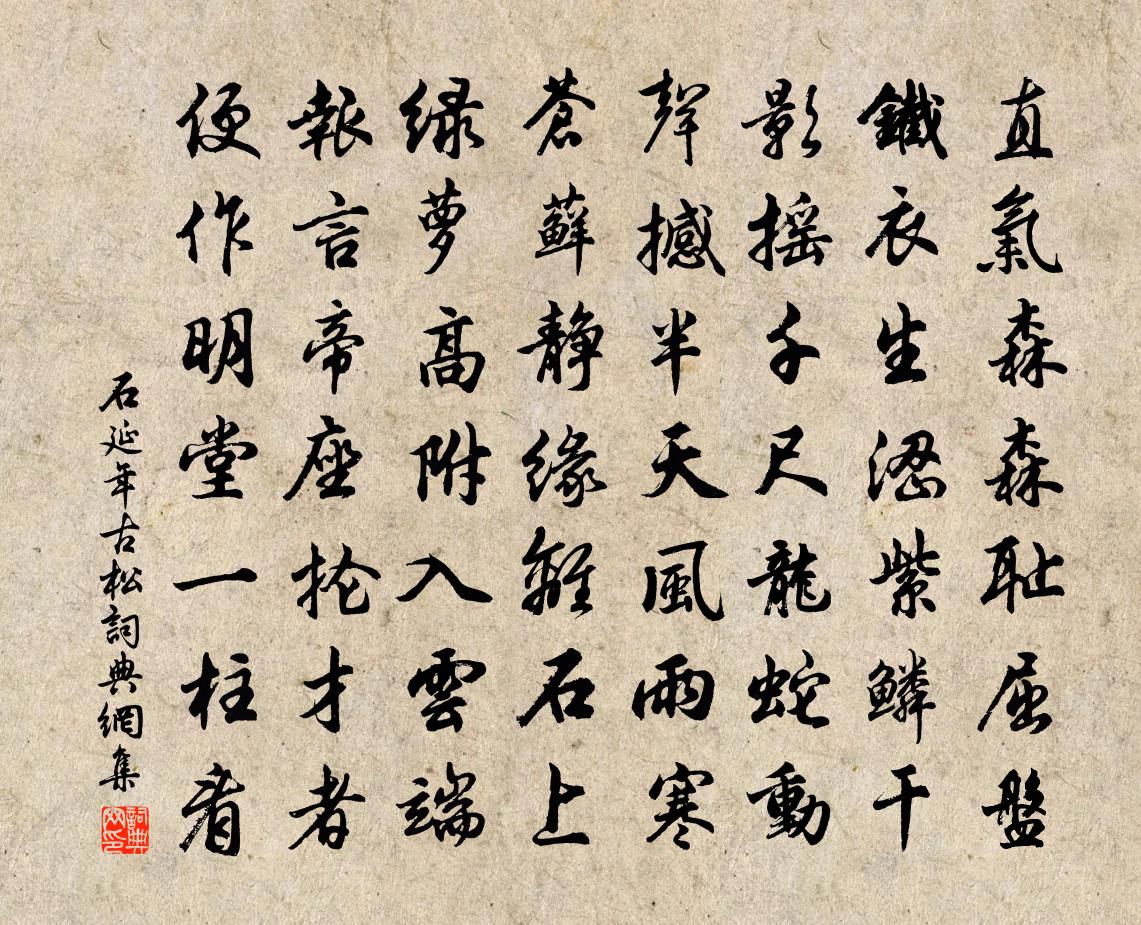 直氣森森恥屈盤
鐵衣生澀紫鱗干
影搖千尺龍蛇動
聲撼半天風雨寒
蒼蘚靜緣離石上
綠蘿高附入雲端
報言帝座掄才者
便作明堂一柱看
石延年古松詞典網集
詞典网印